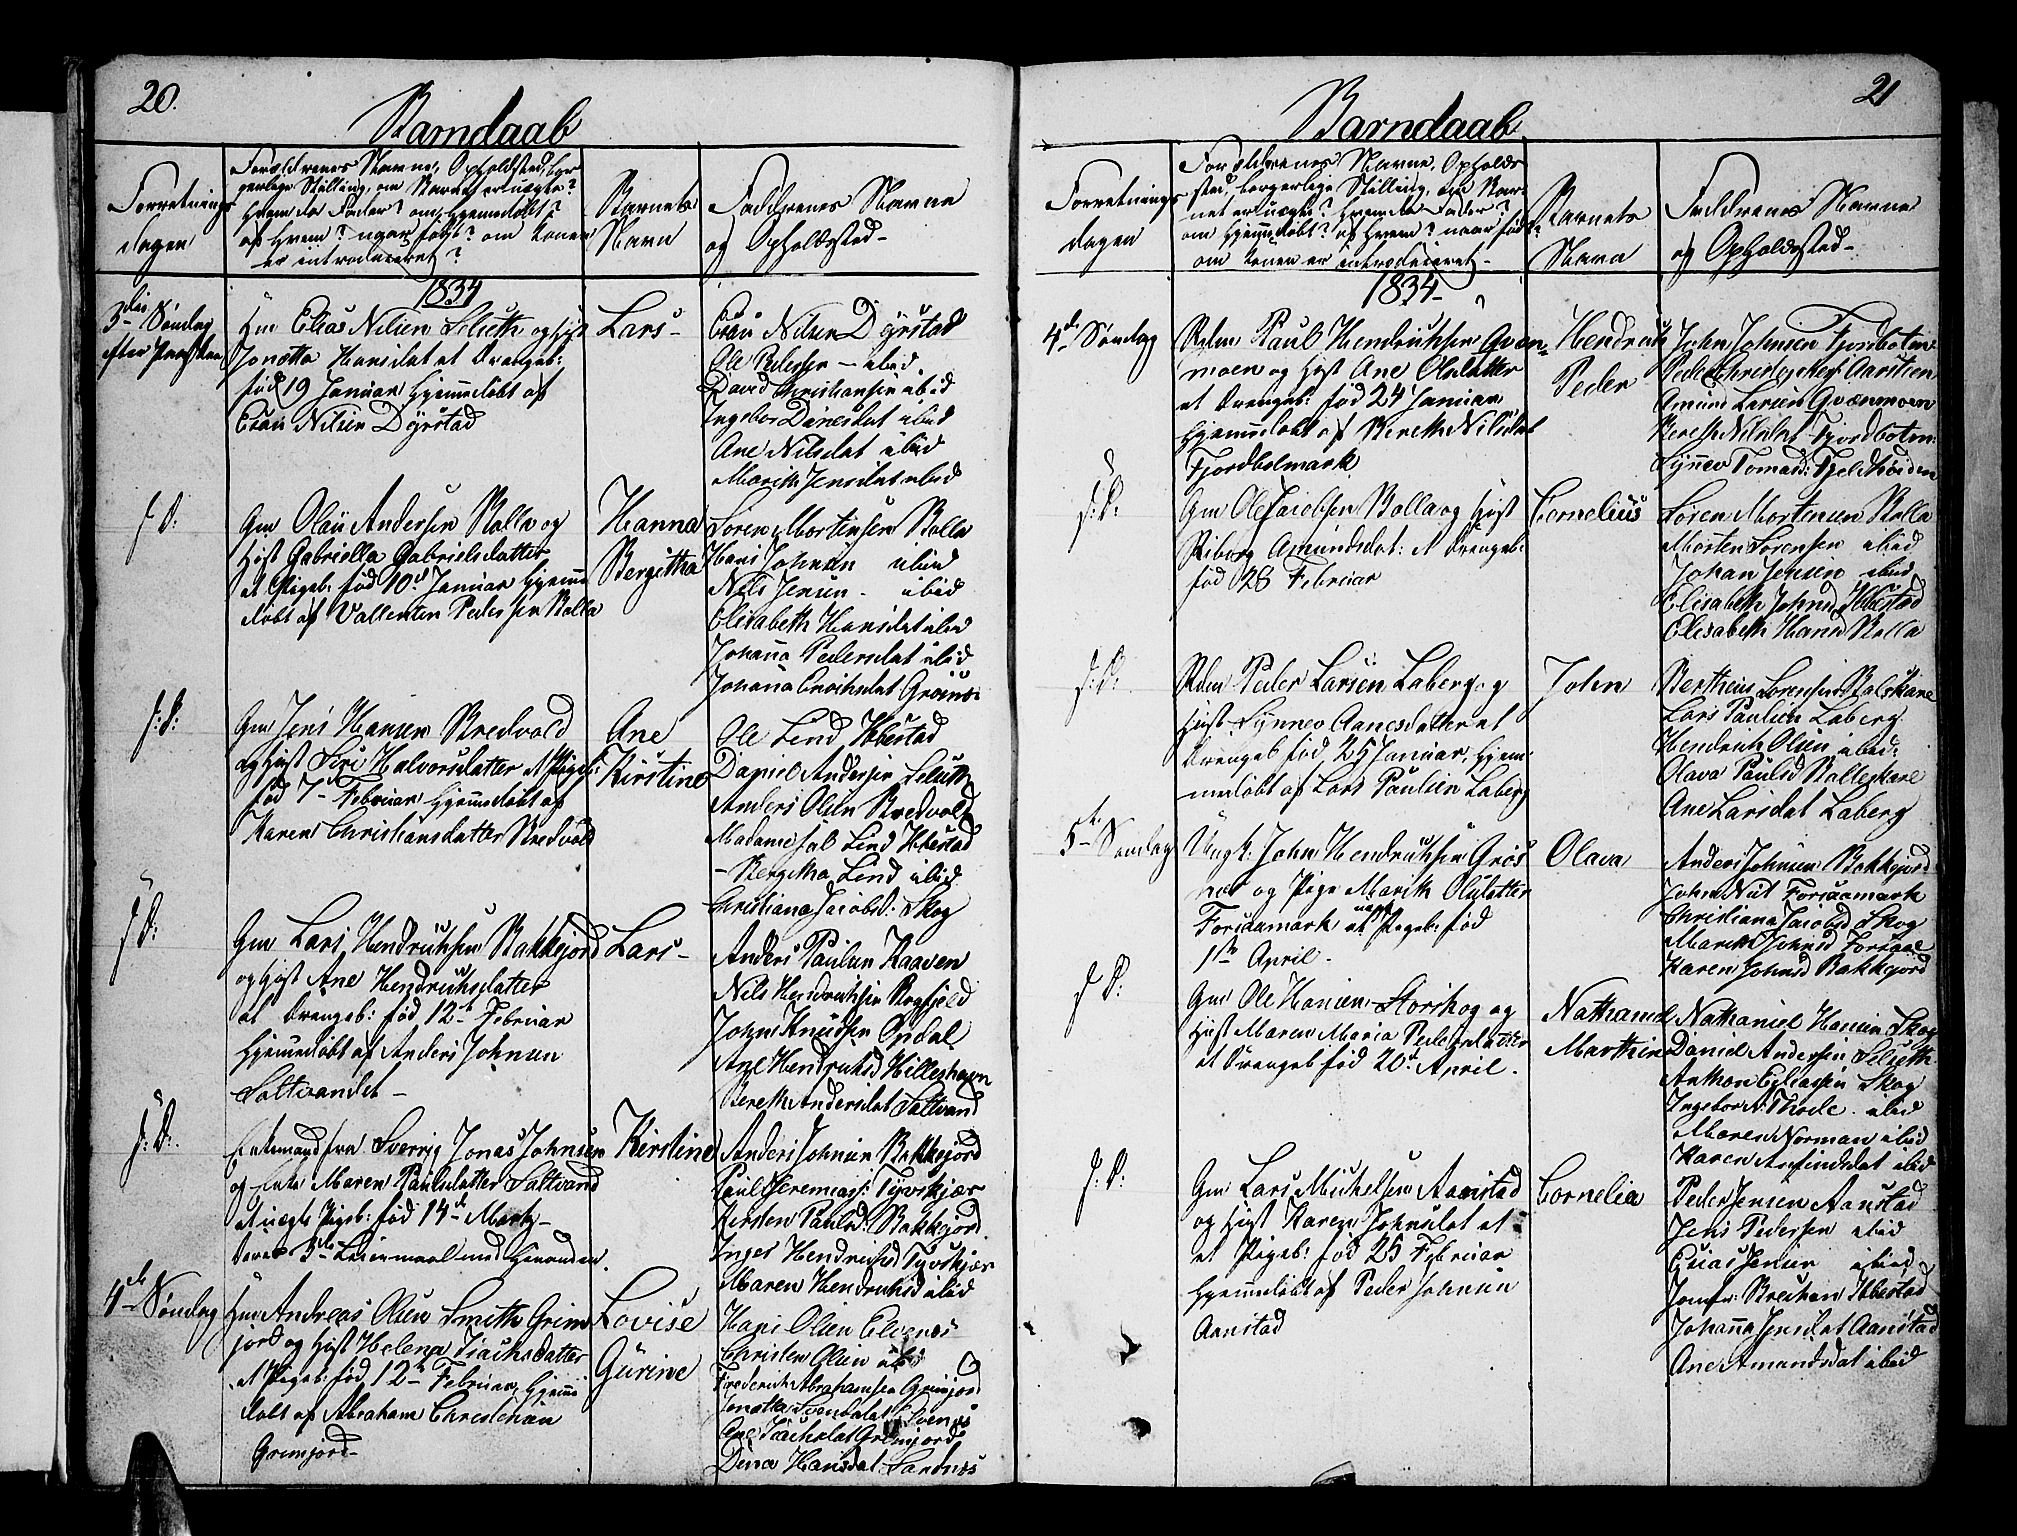 20.
Barndaab
Forretnings
dagen
Forældrenes Navne, Opholdsted, bor
gerlige Stilling, om Barnet er uægte?
hvem da Fader? om hjemmedøbt?
af hvem? naar født? om konen
er introduceret?
Barnets
Navn
Faddrenes Navne
og Opholdssted
1834
3die Søndag
efter Paaske
Hm Elias Nilsen Selseth og Hust
Jonetta Hansdat et Drengeb:
fød 19 Januar hjemmedøbt af
Esau Nilsen Dyrstad
Lars
Esau Nilsen Dyrstad
Ole Pedersen ibid
David Christiansen ibid
Ingebor Danelsdat ibid
Ane Nilsdat ibid
Marith Jensdat ibid
s. D.
Gm Olaii Andersen Rolla og
Hust Gabriella Gabrielsdatter
et Pigeb: fød 10d Januar hjemme
døbt af Vallenten Pedersen Rolla
Hanna
Bergitha
Søren Mortensen Rolla
Hans Johnsen ibid
Nils Jensen ibid
Elisabeth Hansdat ibid
Johanna Pedersdat ibid
Johana Eriksdat
s. D.
Gm Jens Hansen Bredvold
og Hust Siri Halvorsdatter et Pigeb:
fød 7d Februar hjemmedøbt af
Karen Christiansdatter Bredvold
Ane
Kirstine
Ole Lind Ibestad
Daniel Andersen Selseth
Anders Olsen Bredvold
Madame Lind Ibestad
Bergitha Lind ibid
Christiana Jacobsd: Skog
s. D.
Gm Lars Hendrichsen Bakkejord
og Hust Ane Hendrichsdatter
et Drengeb: fød 12te Februar
hjemmedøbt af Anders Johnsen
Saltvandet
Lars
Anders Paulsen Kaaven
Nils Hendrichsen
John Knudsen Opdal
Ane Hendrichsd Hilleshavn
Bereth Andersdat Saltvand
s. D.
Enkemand fra Sverrig Jonas Johnsen
og Enke Maren Paulsdatter Saltvand
et uægte Pigeb: fød 14de Marty
deres 3die Leiermaal med hinanden.
Kirstine
Anders Johnsen Bakkejord
Paul Jeremiass: Tyvskjær
Kirsten Paulsd: Bakkejord
Inger Hendrichsd Tyvskjær
Maren Hendrichsd ibid
4de Søndag
Hm Andreas Olsen Smith Grim
jord og Hust Helena Isachsdatter
et Pigeb: fød 12te Februar, hjemme
døbt af Abraham Christensen
Grimjord
Lovise
Gurine
Hans Olsen Elvenes
Christen Olsen ibid
Frederich Abrahamsen Grimjord
Jonetta Svendsdat Elvenes
Ane Isachsdat Grimjord
Dina Hansdat Sandnes
21
Barndaab
Forretnings
dagen
Forældrenes Navne, Opholds
sted, borgerlige Stilling, om Bar
net er uægte? hvem da Fader?
om hjemmedøbt? af hvem? naar født?
om konen er introduceret
Barnets
Navn
Faddrenes Navne
og Opholdssted
1834
4de Søndag
Rdm Paul Hendrichsen Qvæn
moen og Hust Ane Olsdatter
et Drengeb: fød 24 Januar
hjemmedøbt af Bereth Nilsdat
Fjordbotmark
Hendrich
Peder
John Johnsen Fjordbotm
Peder Christophers: Aarstien
Amund Larsen Qvænmoen
Bereth Nilsdat Fjordbotm:
Synnev Tomasd:
s. D.
Gm Ole Jacobsen Rolla og Hust
Riborg Amundsdat: et Drengeb:
fød 28 Februar
Cornelius
Søren Mortensen Rolla
Morten Sørensen ibid
Johan Jensen ibid
Elisabeth Johnsd Ibestad
Elisabeth Hansd Rolla
s. D.
Rdm Peder Larsen Laberg og
Hust Synnev Aanesdatter et
Drengeb fød 25 Januar, hjem
medøbt af Lars Paulsen Laberg
John
Bertheus Sørensen Balskare
Lars Paulsen Laberg
Hendrich Olsen ibid:
Olava Paulsd Balleskare
Ane Larsdat Laberg
5te Søndag
Ungk: John Hendrichsen Grøs
nes og Pige Marith Olsdatter
Forsaamark et uægte Pigeb: fød
1ste April
Olava
Anders Johnsen Bakkejord
John Forsaamark
Christiana Jacobsd Skog
Marith Johnsd Forsaae
Karen Johnsd Bakkejord
s. D.
Gm Ole Hansen Storskog og
Hust Maren Maria Pedersdatter
et Drengeb fød 20de April.
Nathanael
Marthin
Nathaniel Hansen Skog
Daniel Andersen Selseth
Anthon Eliassen Skog
Ingebor N: Thode ibid
Maren Norman ibid
Karen Arefindsdat ibid
s. D.
Gm Lars Michelsen Aanstad
og Hust Karen Johnsdat et
et Pigeb: fød 25 Februar
hjemmedøbt af Peder Johnsen
Aanstad
Cornelia
Peder Jensen Aanstad
Jens Pedersen ibid
Esaias Jensen ibid
Jomfr: Brechan Ibestad
Johanna Jensdat Aanstad
Ane Amandsdat ibid